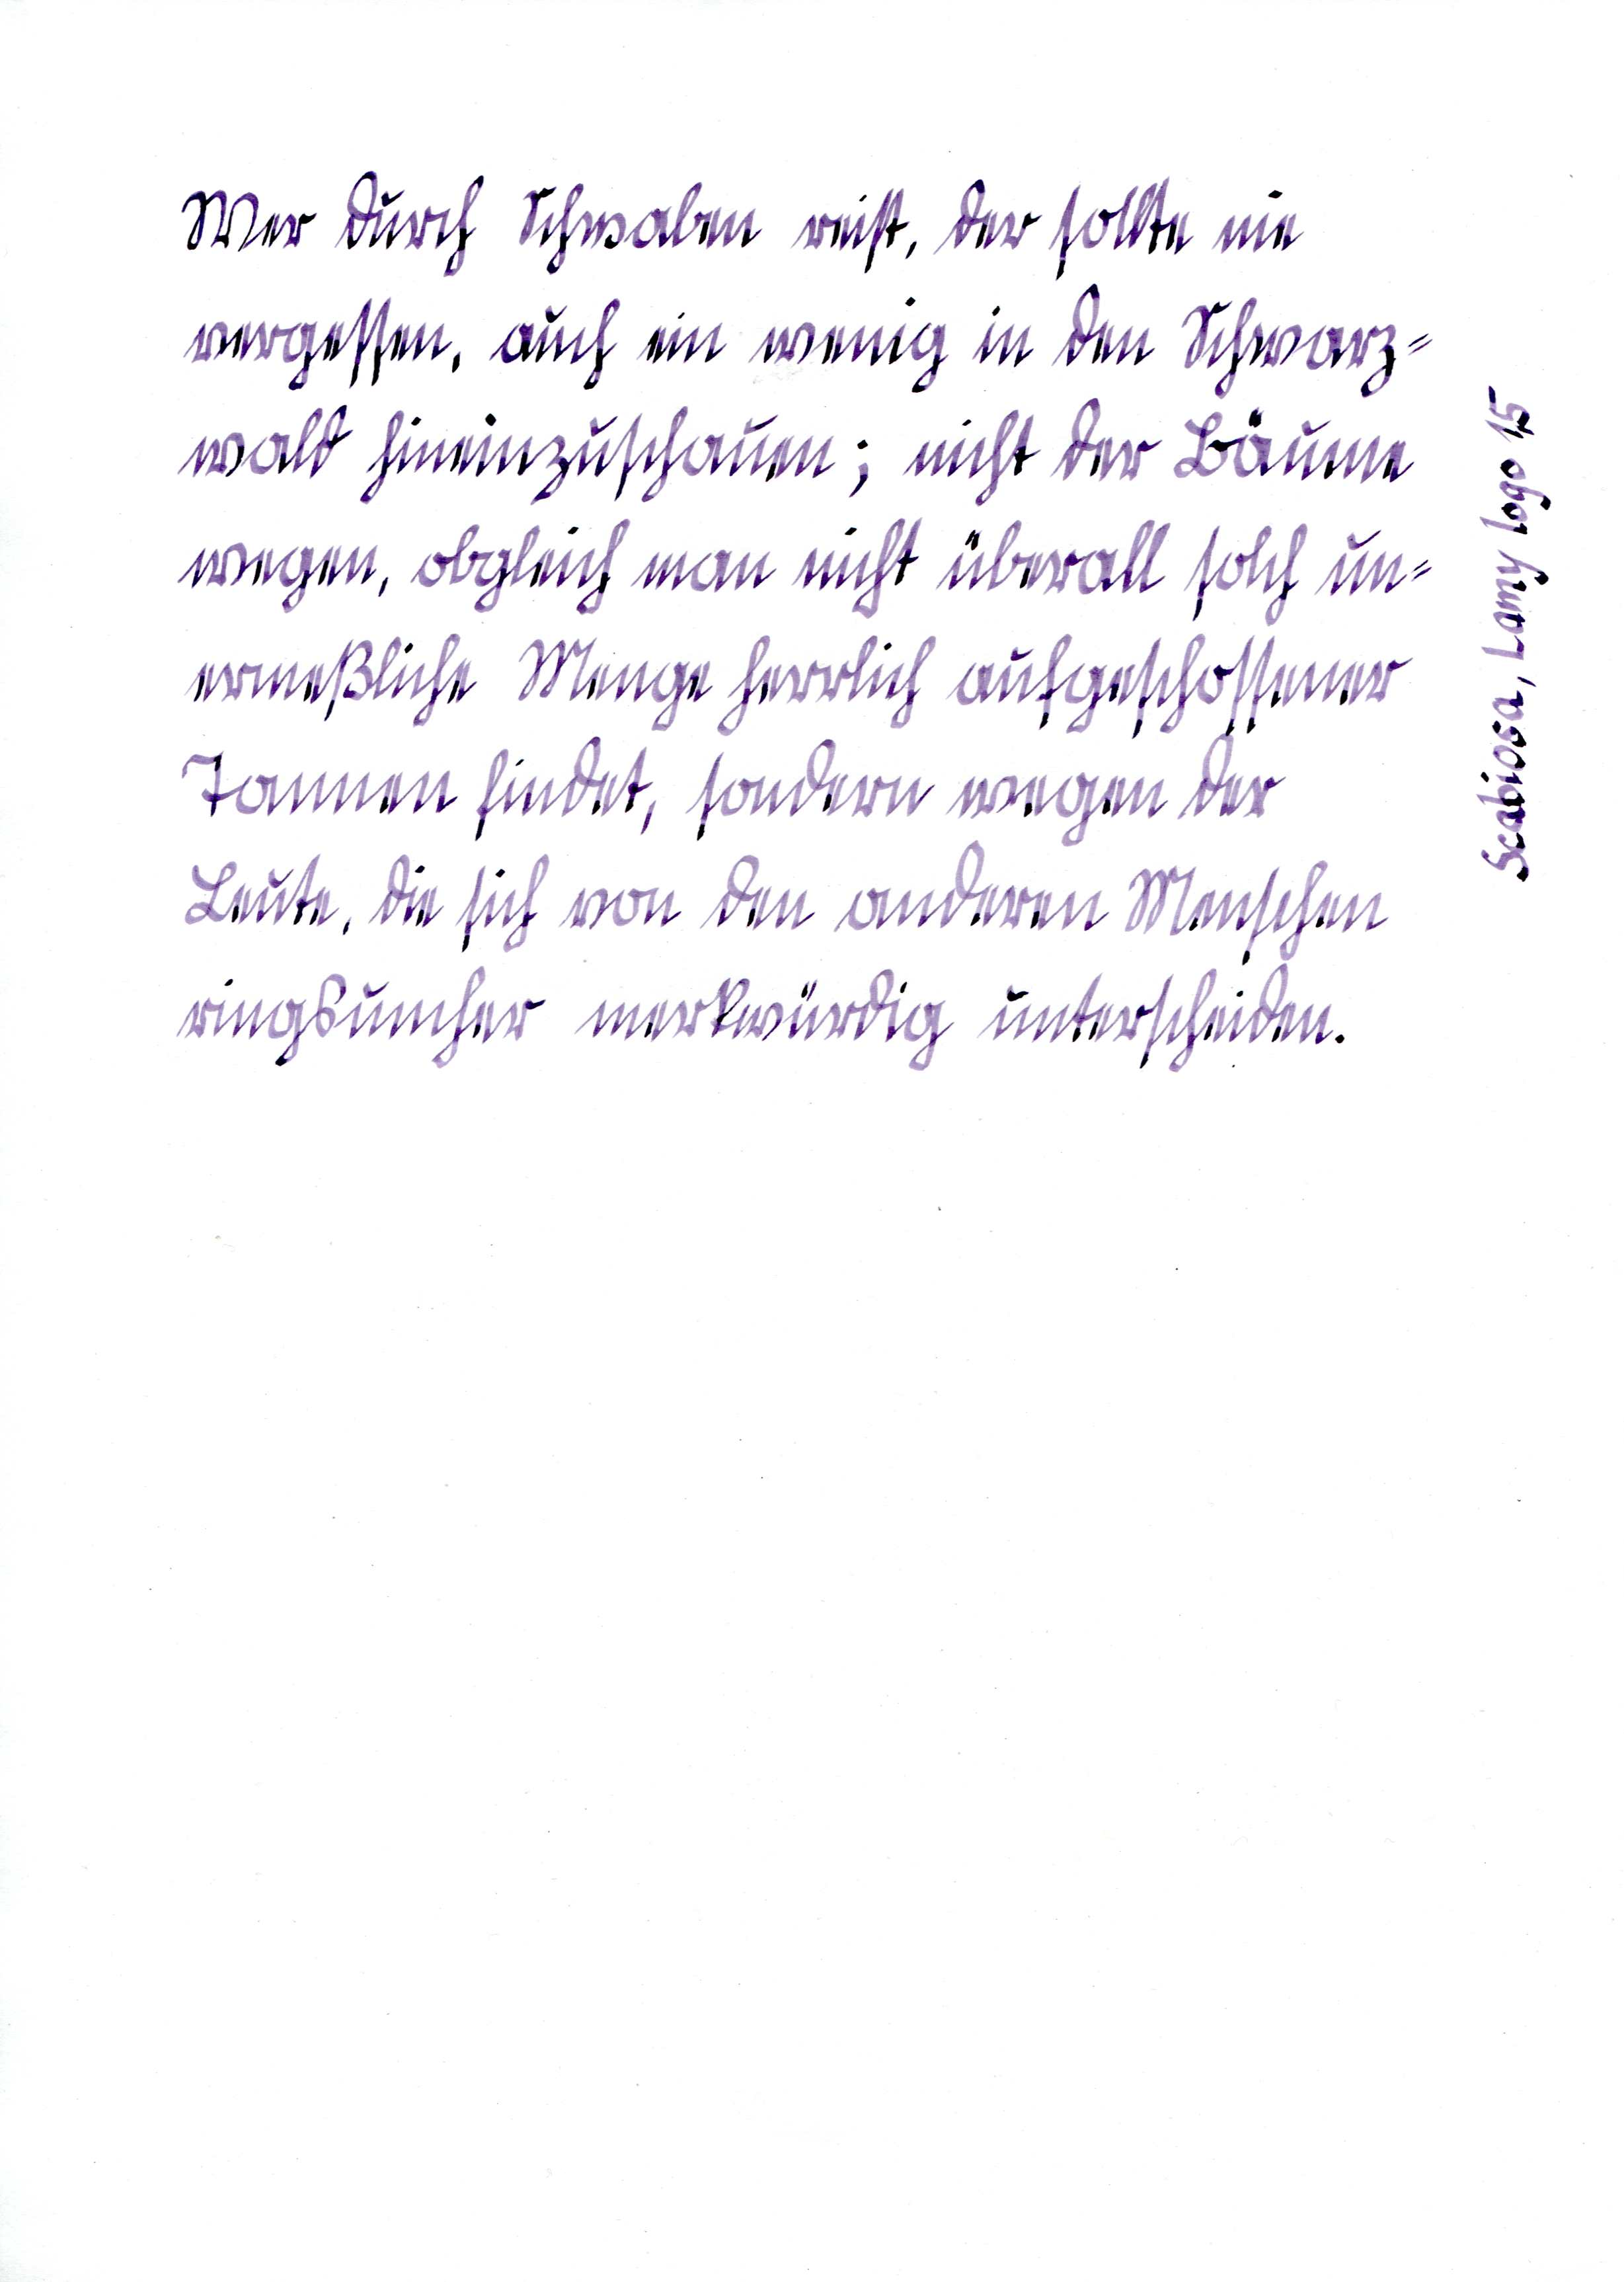 Wer durch Schwaben reist, der sollte nie
vergessen, auch ein wenig in den Schwarz=
wald hineinzuschauen; nicht der Bäume
wegen, obgleich man nicht überall solch un=
ermeßliche Menge herrlich aufgeschossener
Tannen findet, sondern wegen der
Leute, die sich von den anderen Menschen
ringsumher merkwürdig unterscheiden.
Scabiosa, Lamy logo 1,5